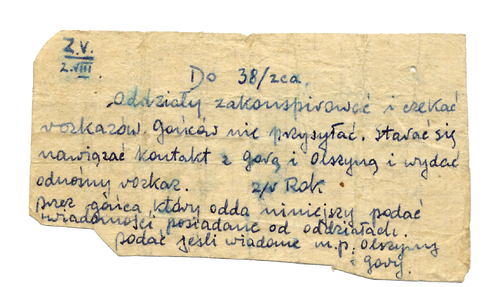 Z.V.
2.VIII
Do 38/zca
Oddziały zakonspirować i czekać
rozkazów. Gońców nie przysyłać. starać się
nawiązać kontakt z gorą i Olszyną i wydać
odnośny rozkaz. z/v Rok
przez gońca który odda niniejszy podać
wiadomości posiadane od oddziałach.
podać jeśli wiadome m.p. Olszyny
i gory.